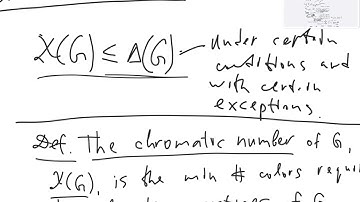 χ(G) ≤ Δ(G) – under certain
conditions and
with certain
exceptions.
Def. The chromatic number of G,
χ(G), is the min # colors requi